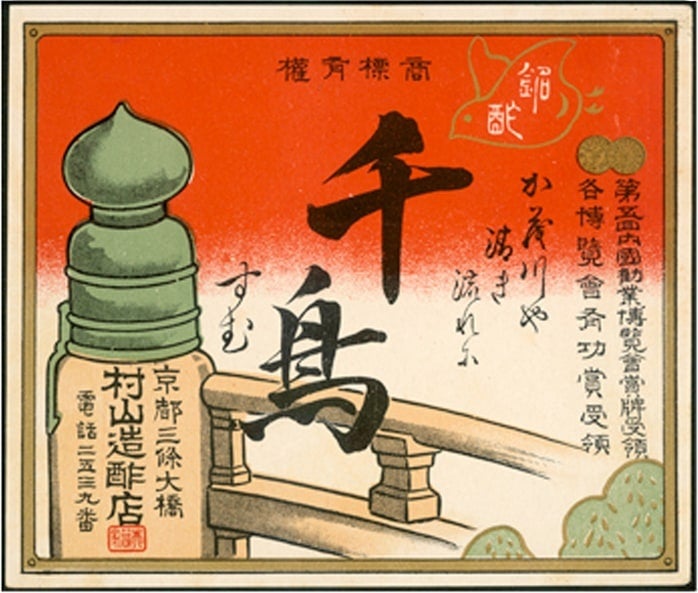 商標有權
銘酢
第五回内國勸業博覽會賞牌受領
各博覽會有功賞受領
か茂川や
清き
流れに
千鳥
すむ
京都三條大橋
村山造酢店
電話二五三九番